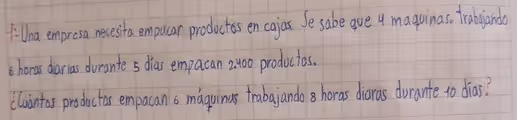 1-Una empresa necesita empacar productos en cajas Se sabe que 4 maquinas. Trabajando
6 horas diarias durante 5 dias empacan 2.400 productos.
¿Cuántos productos empacan 6 máquinas trabajando 8 horas diaras durante 10 dias?